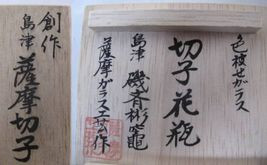 色被せガラス
切子花瓶
島津 磯斉彬竈
薩摩ガラス工芸作
創作
島津 薩摩切子